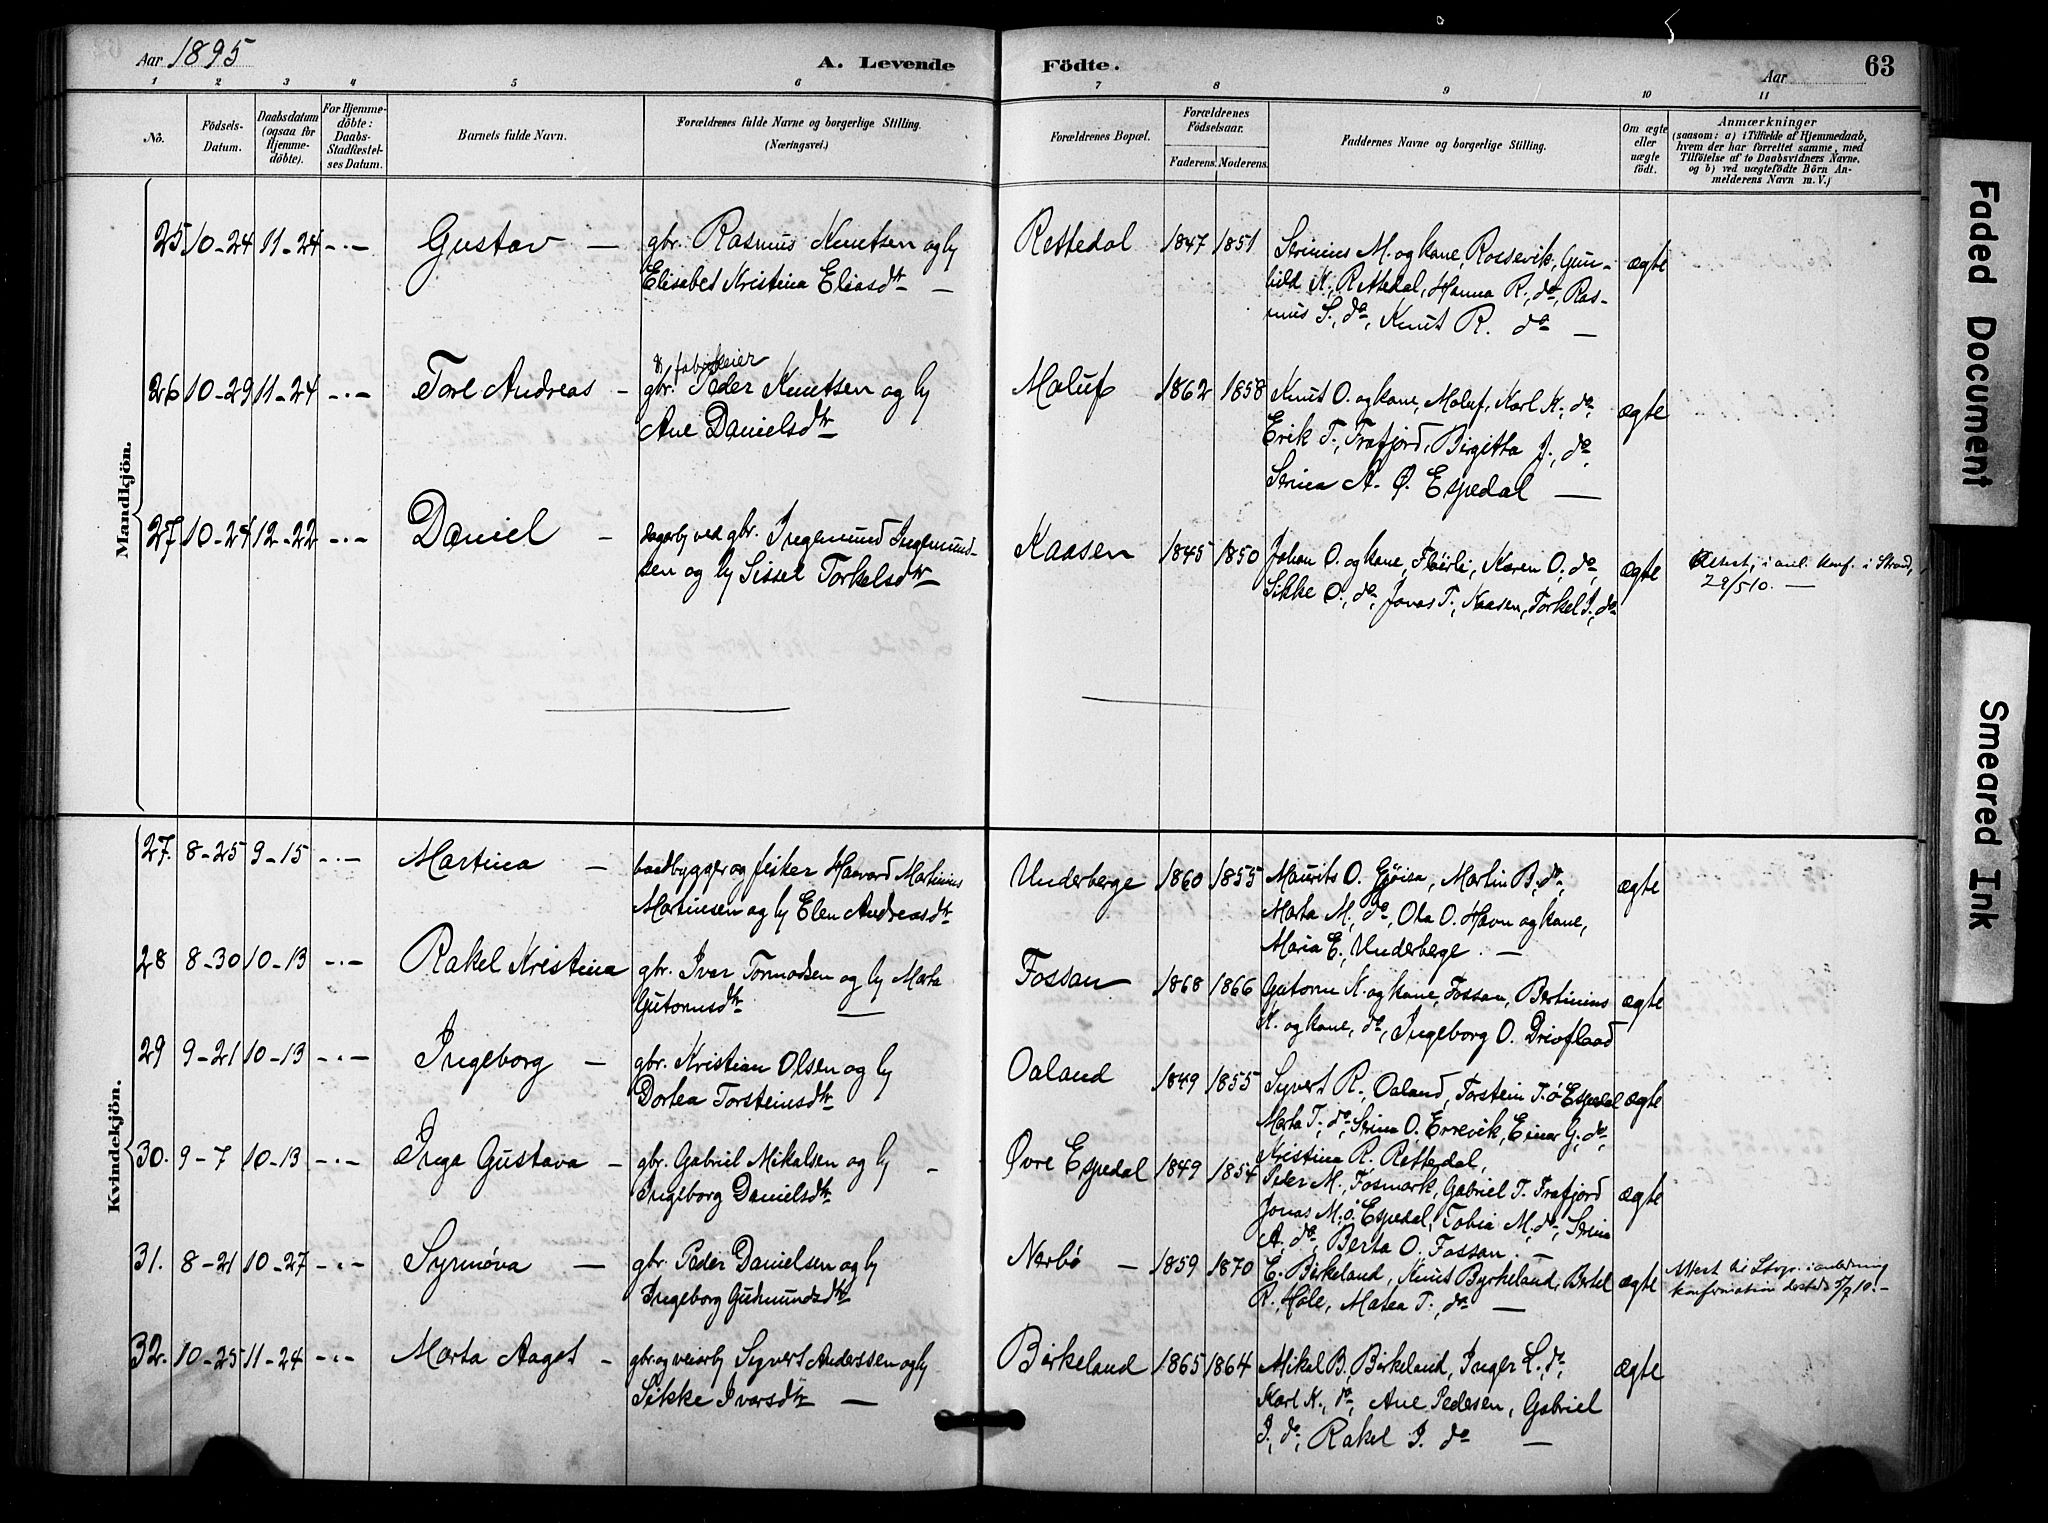 Aar 1895
A. Levende
Födte.
Aar
63
1 2 3 4 5 6 7 8 9 10 11
No.
Födsels-
Datum.
Daabsdatum
(ogsaa for
Hjemme-
döbte).
For Hjemme-
döbte:
Daabs-
Stadfæstel-
ses Datum.
Barnets fulde Navn.
Forældrenes fulde Navne og borgerlige Stilling.
(Næringsvei.)
Forældrenes Bopæl.
Forældrenes
Födselsaar.
Faderens. Moderens.
Faddernes Navne og borgerlige Stilling.
Om ægte
eller
uægte
født.
Anmærkninger
(saasom: a) i Tilfælde af Hjemmedaab,
hvem der har forrettet samme, med
Tilföielse af to Daabsvidners Navne.
og b) ved uægtefödte Börn An-
melderens Navn m. V.)
Mandkjön.
25 10-24 11-24 -·- Gustav — gbr. Rasmus Knutsen og hy
Elisabet Kristina Eliasdtr —
Rettedal 1847 1851
Serinius M. og kone, Rossevik, Gun-
hild K., Rettedal, Hanna R., do, Ras-
mus S., do, Knut R. do —
ægte
26 10-29 11-24 -·- Tore Andreas —
gbr. Peder Knutsen og hy
Ane Danielsdtr
Maluf 1862 1858
Knut O. og kone, Maluf, Karl K., do,
Erik T., Frafjord, Birgitta J., do,
Serina A. Ø. Espedal —
ægte
27 10-24 12-22 -·- Daniel — dagarb ved gbr. Ingemund Ingemund-
sen og hy Sissel Torkelsdtr
Kaasen 1845 1850
Johan O. og kone, Flørli, Karen O., do,
Sikke O., do, Jonas T., Kaasen, Torkel J., do
ægte
Attest, i anl. konf. i Strand,
29/5 10. —
Kvindekjön.
27. 8-25 9-15 -·- Martina — baadbygger og fisker Haavard Martinius
Martinsen og hy Elen Andreasdtr
Underberge 1860 1855
Maurits O. Gjøisa, Martin B., do,
Marta M., do, Ola O. Havn og kone,
Maria E., Underberge. —
ægte
28 8-30 10-13 -·- Rakel Kristina gbr. Ivar Tormodsen og hy Marta
Gutormsdtr —
Fossan 1868 1866
Gutorm K. og kone, Fossan, Bertinius
K. og kone, do, Ingeborg O. Driofland
ægte
29 9-21 10-13 -·- Ingeborg — gbr. Kristian Olsen og hy
Dortea Torsteinsdtr
Oaland 1849 1855
Syvert R., Oaland, Torstein T. ø Espedal
Marta T., do, Serina O. Errevik, Einar G., do,
Kristina R. Rettedal,
ægte
30. 9-7 10-13 -·- Inga Gustava — gbr. Gabriel Mikalsen og hy —
Ingeborg Danielsdtr
Øvre Espedal 1849 1854
Peder M., Fosmark, Gabriel T. Frafjord
Jonas M. ø. Espedal, Tobia M., do, Serina
A., do, Berta O. Fossan. —
ægte
31. 8-21 10-27 -·- Synnøva — gbr. Peder Danielsen og hy
Ingeborg Gudmundsdtr
Nerbø — 1859 1870
E. Birkeland, Knut Byrkeland, Bertel
R., Høle, Matea T., do —
ægte
Attest til i anledning
konfirmation 10. —
32. 10-25 11-24 -·- Marta Aagot — gbr. og veiarb Syvert Anderssen og hy
Sikke Ivarsdtr —
Birkeland 1865 1864
Mikal B. Birkeland, Inger L., do,
Karl K., do, Ane Pedersen, Gabriel
I., do, Rakel I. do —
ægte
Faded Document
Smeared Ink